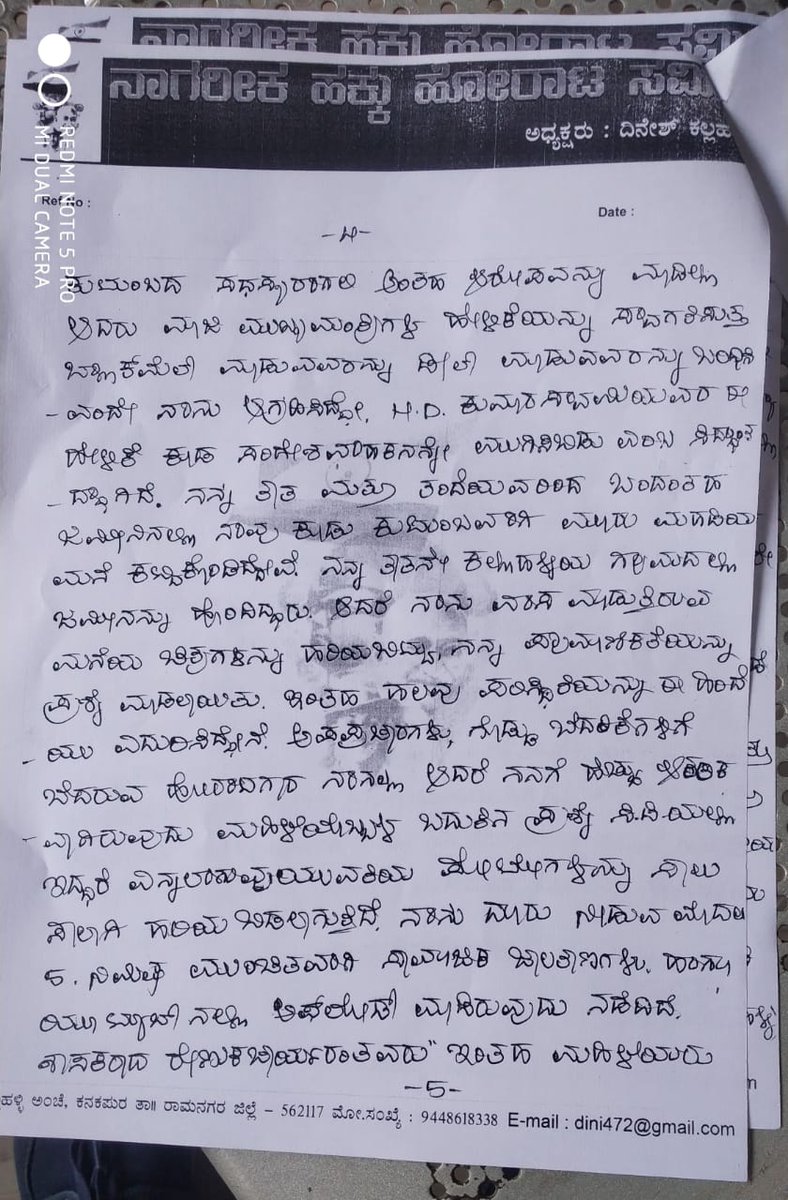 ನಾಗರೀಕ ಹಕ್ಕು ಹೋರಾಟ ಸಮಿ
ನಾಗರೀಕ ಹಕ್ಕು ಹೋರಾಟ ಸಮಿ
ಅಧ್ಯಕ್ಷರು : ದಿನೇಶ್ ಕಲ್ಲಹ
REDMI NOTE 5 PRO
MI DUAL CAMERA
Ref No :
Date :
-4-
ಕುಟುಂಬದ ಸಧಸ್ಯರಾಗಲಿ ಅಂತಹ ಆರೋಪವನ್ನು ಮಾಡಿಲ್ಲ
ಆದರು ಮಾಜಿ ಮುಖ್ಯಮಂತ್ರಿಗಳ ಹೇಳಿಕೆಯನ್ನು ಸ್ವಾಗತಿಸುತ್ತ
ಬ್ಲಾಕ್‌ಮೇಲ್ ಮಾಡುವವರನ್ನು ಡೀಲ್ ಮಾಡುವವರನ್ನು ಬಂಧಿಸಿ
- ಎಂದೇ ನಾನು ಆಗ್ರಹಿಸಿದ್ದೇ. H.D. ಕುಮಾರಸ್ವಾಮಿಯವರ ಈ
ಹೇಳಿಕೆ ಕೂಡ ಸಂದೇಶವಾಹಕನನ್ನೇ ಮುಗಿಸಿಬಿಡು ಎಂಬ ಸಿದ್ಧಾಂತ
- ದ್ದಾಗಿದೆ. ನನ್ನ ತಾತ ಮತ್ತು ತಂದೆಯವರಿಂದ ಬಂದಂತಹ
ಜಮೀನಿನಲ್ಲಿ ನಾವು ಕೂಡು ಕುಟುಂಬವಾಗಿ ಮೂರು ಮಹಡಿಯ
ಮನೆ ಕಟ್ಟಿಕೊಂಡಿದ್ದೇವೆ. ನನ್ನ ತಾತನೇ ಕಲ್ಲಹಳ್ಳಿಯ ಗ್ರಾಮದಲ್ಲಿ
ಜಮೀನನ್ನು ಹೊಂದಿದ್ದಾರು. ಆದರೆ ನಾನು ವಾಸ ಮಾಡುತ್ತಿರುವ
ಮನೆಯ ಚಿತ್ರಗಳನ್ನು ಹರಿಯಬಿಟ್ಟು, ನನ್ನ ಪ್ರಾಮಾಣಿಕತೆಯನ್ನು
ಪ್ರಶ್ನೆ ಮಾಡಲಾಯಿತು. ಇಂತಹ ಹಲವು ಪರಿಸ್ಥಿತಿಯನ್ನು ಈ ಹಿಂದೆ
- ಯು ಎದುರಿಸಿದ್ದೇನೆ. ಅಪಪ್ರಚಾರಗಳು, ಗೊಡ್ಡು ಬೆದರಿಕೆಗಳಿಗೆ
ಬೆದರುವ ಹೋರಾಟಗಾರ ನಾನಲ್ಲ ಆದರೆ ನನಗೆ ಹೆಚ್ಚು ಆತಂಕ
- ವಾಗಿರುವುದು ಮಹಿಳೆಯೊಬ್ಬಳ ಬದುಕಿನ ಪ್ರಶ್ನೆ ಸಿ.ಡಿ.ಯಲ್ಲಿ
ಇದ್ದಾರೆ ಯುವತಿಯ ಪೋಟೋಗಳನ್ನು ಸಾಲು
ಸಾಲಾಗಿ ಹರಿಯ ಬಿಡಲಾಗುತ್ತಿದೆ. ನಾನು ದೂರು ನೀಡುವ ಮೊದಲ
5. ನಿಮಿಷ ಮುಂಚಿತವಾಗಿ ಸಾಮಾಜಿಕ ಜಾಲತಾಣಗಳು, ಹಾಗೂ
ಯೂಟ್ಯೂಬ್ ನಲ್ಲಿ ಅಪ್‌ಲೋಡ್ ಮಾಡಿರುವುದು ನಡೆದಿದೆ.
ಶಾಸಕರಾದ ರೇಣುಕಚಾರ್ಯರಂತವರು" ಇಂತಹ ಮಹಿಳೆಯರು
-5-
ಹಳ್ಳಿ ಅಂಚೆ, ಕನಕಪುರ ತಾ॥ ರಾಮನಗರ ಜಿಲ್ಲೆ – 562117 ಮೋ.ಸಂಖ್ಯೆ : 9448618338 E-mail : dini472@gmail.com